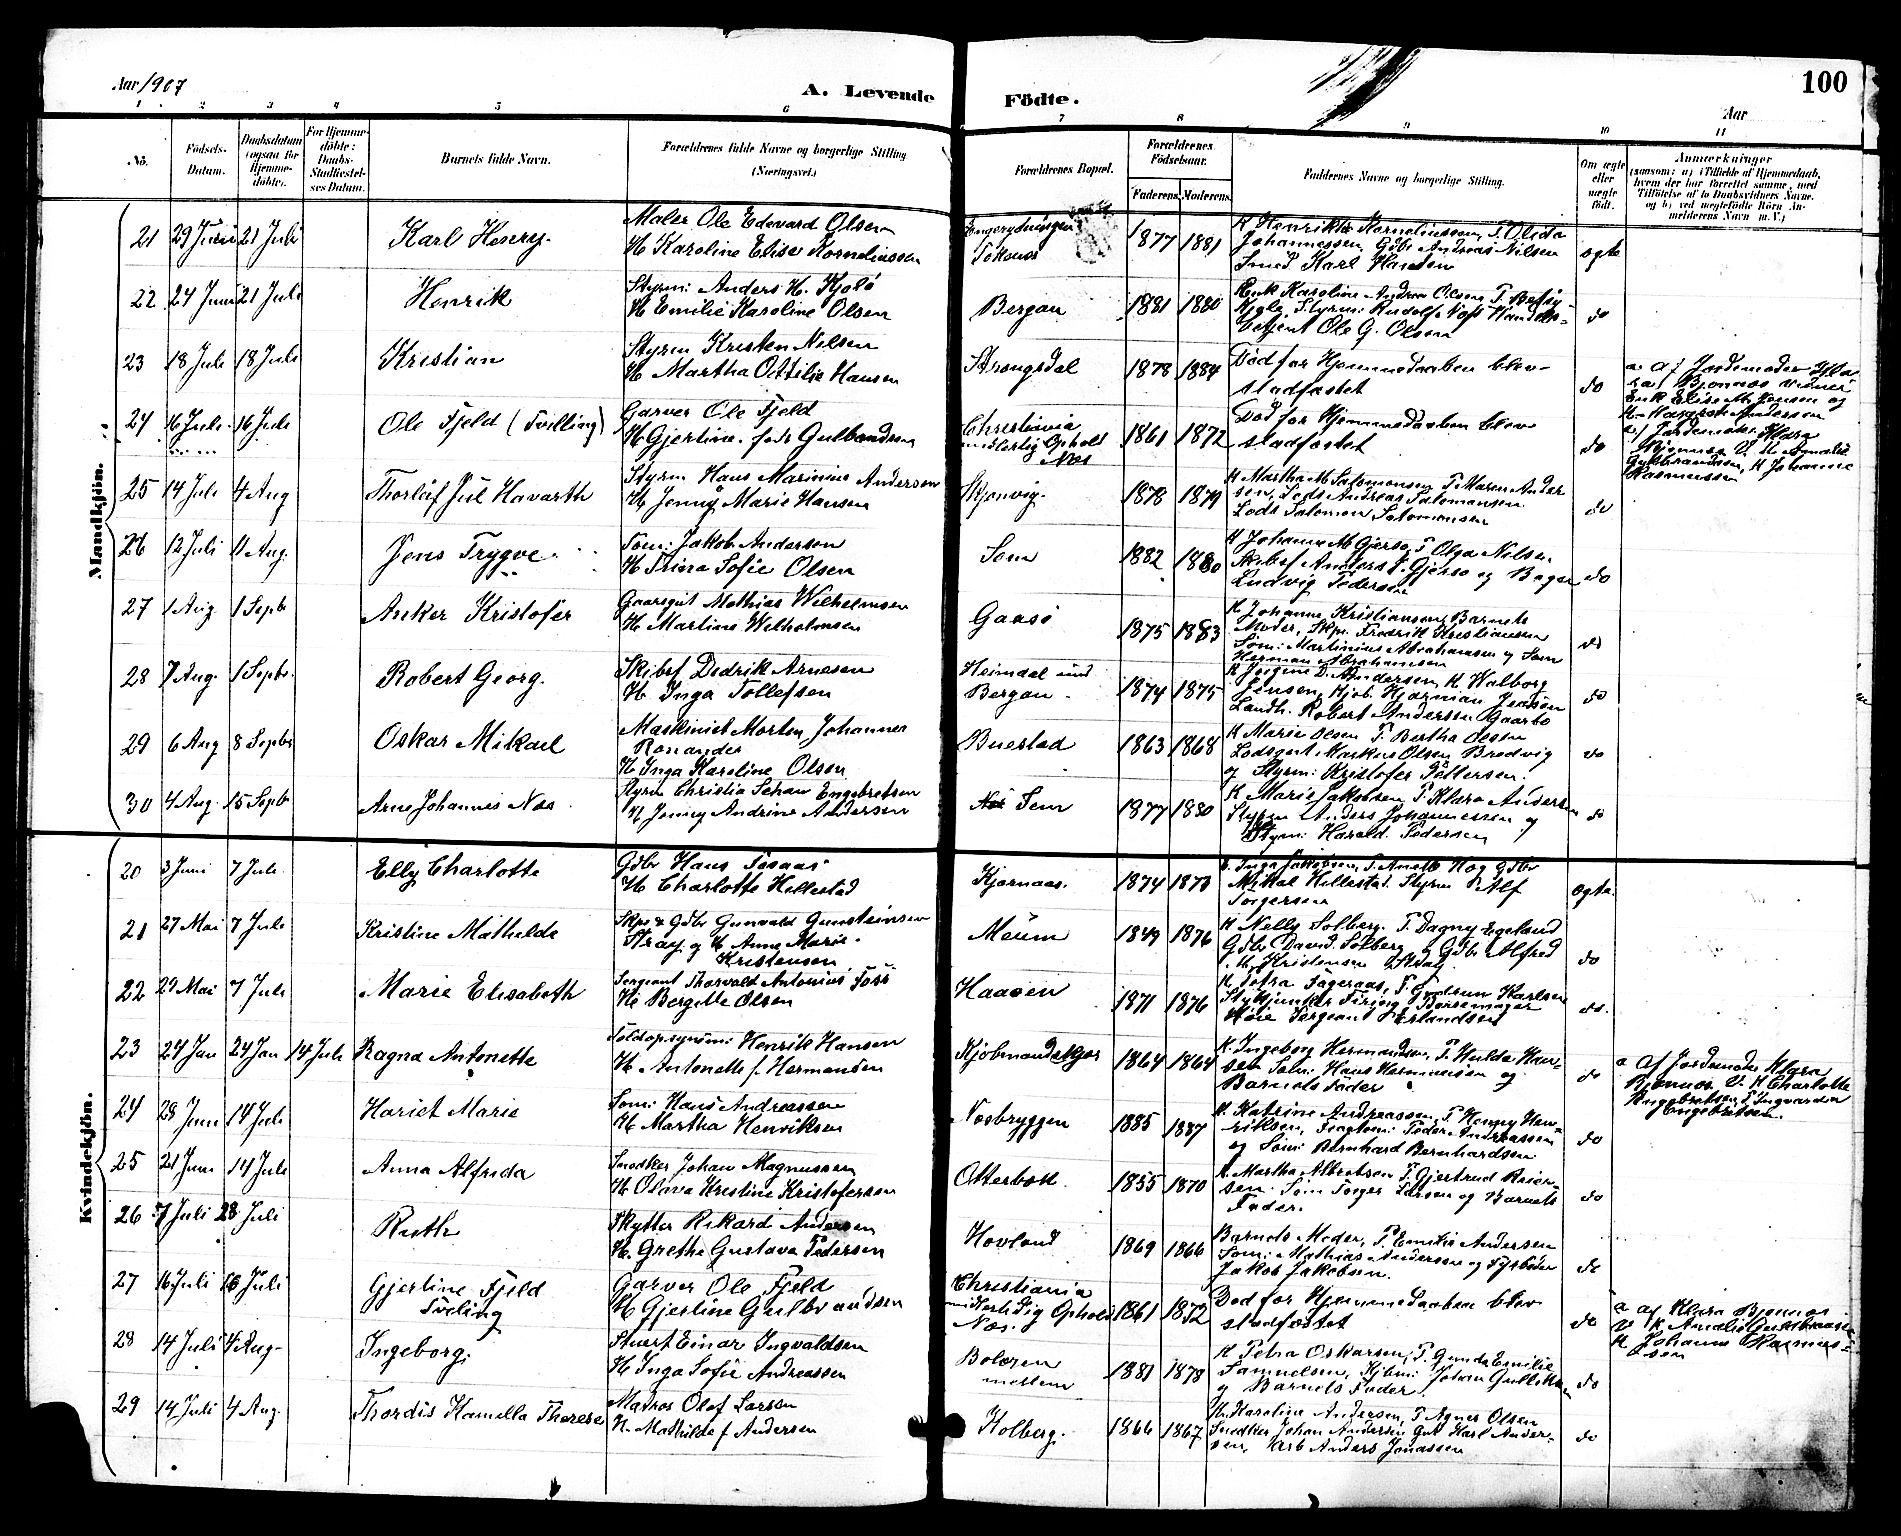 Aar 1907
A. Levende Födte.
100
Aar
1 2 3 4 5 6 7 8 9 10 11
No. Födsels-Datum. Daabsdatum (ogsaa for Hjemmedöbte). For Hjemmedöbte: Daabs-Stadfæstelses Datum. Barnets fulde Navn. Forældrenes fulde Navne og borgerlige Stilling (Næringsvei.) Forældrenes Bopæl. Forældrenes Födselsaar. Faderens Moderens Faddernes Navne og borgerlige Stilling. Om ægte eller uægte födt. Anmærkninger
Mandkjön.
21 29 Juni 21 Juli Karl Henry. Maler Ole Edevard Olsen
H Karoline Elise Kornelinssen
1877 1881
Johannessen, Gdbr Andreas Nilsen
Smed Karl Hansen
ægte
22 24 Juni 21 Juli Henrik Styrm: Anders H. Kjolö
H Emilie Karoline Olsen
Bergan 1881 1880
Betjent Ole G. Olsen
do
23 18 Juli 18 Juli Kristian Styrm Kristen Nilsen
H Martha Ottilie Hansen
Strengsdal 1878 1884 Död før Hjemmedaaben blev
stadfæstet
do
a Af Jordemoder Klara
Bjønnes Vidner
Enk Elise M. Jensen og
24 16 Juli 16 Juli Ole Fjeld (Tvilling) Garver Ole Fjeld
H Gjertine. født Gulbrandsen
Christiania
midlertidig Ophold
Næs
1861 1872 Død før Hjemmedaaben blev
stadfæstet
do
a/ Jordemoder Klara
Bjønnes V. K Amalie
Gulbrandsen, K Johanne
Rasmussen
25 14 Juli 4 Aug Thorleif Jul Havarth Styrm Hans Marinius Andersen
H Jenny Marie Hansen
Skjønvig. 1878 1879 K Martha M Salomonsen P. Maren Ander
sen, Lods Andreas Salomonsen
Lods Salomon Salomonsen
do
26 12 Juli 11 Aug. Jens Trygve. Søm: Jakob Anderson
H Trina Sofie Olsen
Sem 1882 1880 K Johanne M Gjersø, P. Olga Nilsen
Skibsf Anders J. Gjersø og Bager
Ludvig Pedersen
do
27 1 Aug 1 Septbr Anker Kristofer Gaardgut Mathias Wilhelmsen
H Martine Wilhelmsen
Gaasö 1875 1883 K Johanne Kristiansen, Barnets
Moder, Skpr. Fredrik Kristiansen
Søm: Martinius Abrahamsen og Søm
Herman Abrahamsen
do
28 7 Aug. 1 Septbr. Robert Georg. Skibsf Didrik Arnesen
H Inga Tollefsen
Heimdal und
Bergan.
1874 1875 K Jørgine D. Andersen, K Walborg
Jensen, Kjøb. Hjarman Jensen
Landh. Robert Anderssen Gaarbo
do
29 6 Aug 8 Septbr Oskar Mikael Maskinist Morten Johannes
Ronander
H Inga Karoline Olsen
Buestad 1863 1868 K Marie Olsen P. Bertha Olsen
Lodsgut Markus Olsen Bredvig
og Styrm: Kristofer Pettersen.
do
30 4 Aug. 15 Septbr Arne Johannes Næs Styrm Christia Schaw Engebretsen
H Jenny Andrine Andersen
Sem 1877 1880 K Marie Jakobsen, P. Klara Andersen
Styrm Anders Johannessen og
Styrm: Harald Pedersen
do
Kvindekjön.
20 3 Juni 7 Juli Elly Charlotte Gdbr Hans Fosaas
H Charlotte Hillestad
Kjærnaas. 1874 1873 K. Inga Jakobsen, P. Anette Hog Gdbr
Mikal Hillestad, Styrm Alf
Torgersen
ægte.
21 27 Mai 7 Juli Kristine Mathilde Skpr & Gdbr Gunvald Gunsteinsen
Stray og H Anne Marie
Kristensen
Meum 1849 1876 K Nelly Solberg, P. Dagny Egeland
Gdbr David Solberg og Gdbr Alfred
M. Kristensen Stray
do
22 29 Mai 7 Juli Marie Elisabeth Sergeant Thorvald Antonius Foss
H Bergitte Olsen
Haasen 1871 1876 K. Petra Fageraas, P. Gudrun Karlsen
Høie Sergeant Erlandsen
do.
23 24 Jan 24 Jan 14 Juli Ragna Antonette Toldopsynsm: Henrik Hansen
H Antonette f. Hermansen
Kjöbmandskjær 1864 1864 K. Ingeborg Hermansen, P. Hulda Han-
sen Søm: Hans Hermansen og
Barnets Fader
do
a Af Jordemoder Klara
Bjønnes V. K Charlotte
Engebretsen, P. Ingvarda
Engebretsen.
24 28 Juni 14 Juli Hariet Marie Søm: Hans Andreassen
H Martha Henriksen
Næsbryggen 1885 1887 K. Katrine Andreassen, P. Henny Hen-
riksen, Fragtm: Peder Andreassen
og Søm: Bernhard Bernhardsen
do
25 21 Juni 14 Juli Anna Alfrida Snedker Johan Magnussen
H Olava Kristine Kristofersen
Otterbæk. 1855 1870 K. Martha Albretsen P. Gjertrud Reier-
sen. Søm Torger Larsen og Barnets
Fader.
do
26 7 Juli 28 Juli Ruth Skytter Rikard Andersen
H. Grethe Gustava Pedersen
Hovland 1869 1866 Barnets Moder, P. Emilie Andersen
Søm: Mathias Andersen og Fyrböder
Jakob Jakobsen.
do
27 16 Juli 16 Juli Gjertine Fjeld
Tvilling
Garver Ole Fjeld
H Gjertine Gulbrandsen
Christiania
midlertidig Ophold
Næs.
1861 1872 Død før Hjemmedaaben blev
stadfæstet
do
a af Klara Bjønnes
V K Amalie Gulbrandsen
K Johanne Rasmus-
sen
28 14 Juli 4 Aug- Ingeborg. Stuert Einar Ingvaldsen
H Inga Sofie Andreassen
Bolæren
mellem
1881 1878 K Petra Oskarsen, P. Gunda Emilie
Samuelsen, Kjbm: Johan Gulliksen
og Barnets Fader.
do
29 14 Juli 4 Aug. Thordis Kamilla Therese Matros Olaf Larsen
H. Mathilde f Andersen
Holberg. 1866 1867 K. Karoline Andersen, P Agnes Olsen
Snedker Johan Andersen Gut Karl Ander-
sen, Arb Anders Jonassen
do